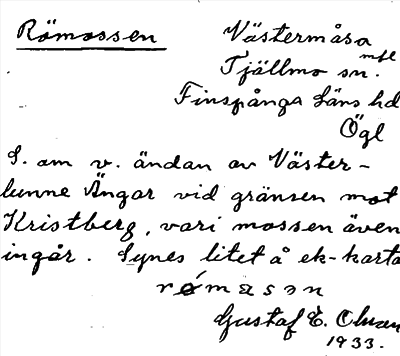 Römossen
Västermåsa
Tjällmo sn.
Finspånga läns hd
Ögl
S. om v. ändan av Väster-
lunne Ängar vid gränsen mot
Kristberg, vari mossen även
ingår. Synes litet å ek-karta
Gustaf E. Olsson
1933.